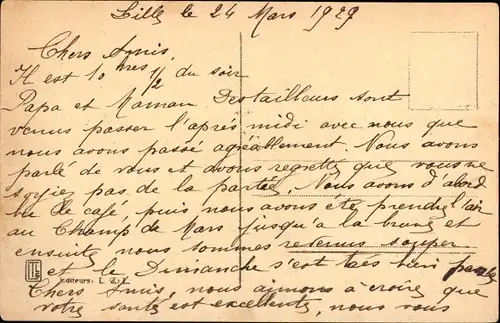 Lille le 24 Mars 1929
Chers Amis,
Il est 10 hres 1/2 du soir
Papa et Maman Destailleurs sont
venus passer l'après midi avec nous que
nous avons passé agréablement. Nous avons
parlé de vous et avons regretté que vous ne
soyiez pas de la partie. Nous avons d'abord
bu le café, puis nous avons été prendre l'air
au Champ de Mars jusqu'à la brune et
ensuite nous sommes revenus souper
et le Dimanche s'est très bien
Chers Amis, nous aimons à croire que
votre santé est excellente, nous vous
Editeurs: L. &. L.